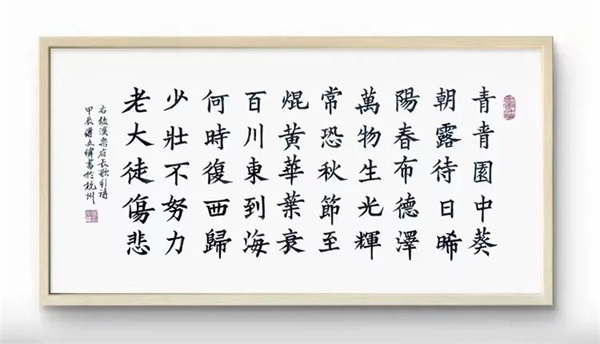 青青園中葵
朝露待日晞
陽春布德澤
萬物生光輝
常恐秋節至
焜黃華葉衰
百川東到海
何時復西歸
少壯不努力
老大徒傷悲
右錄漢樂府長歌行詩
甲辰書於杭州